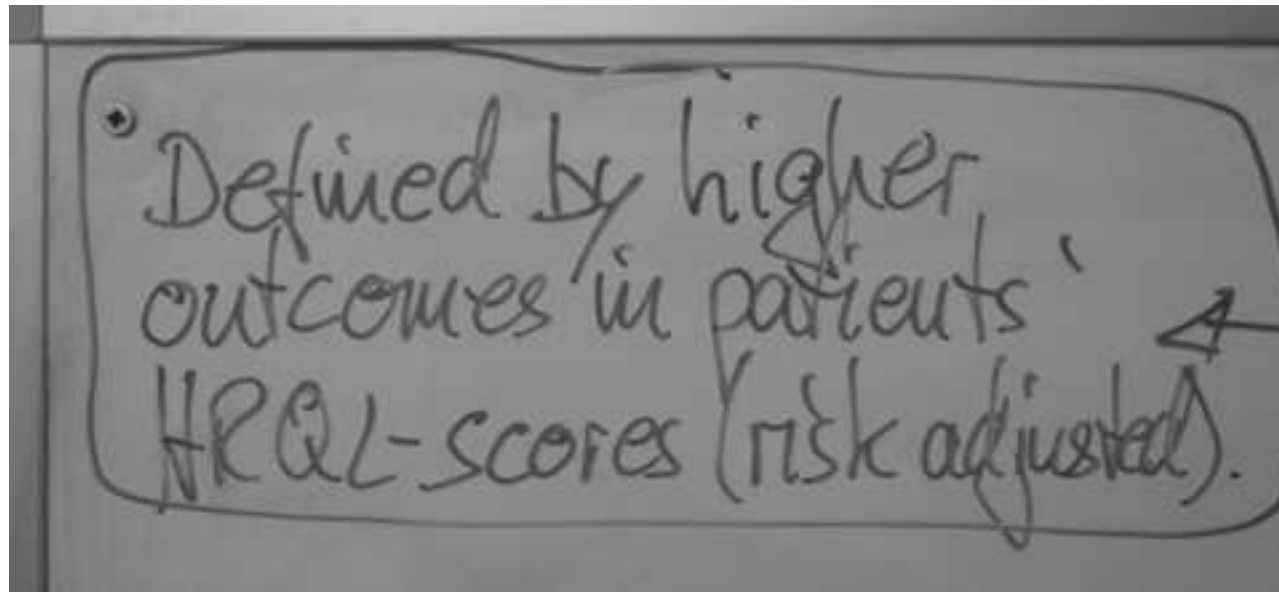 Defined by higher
outcomes in patients'
HRQL-scores (risk adjusted).